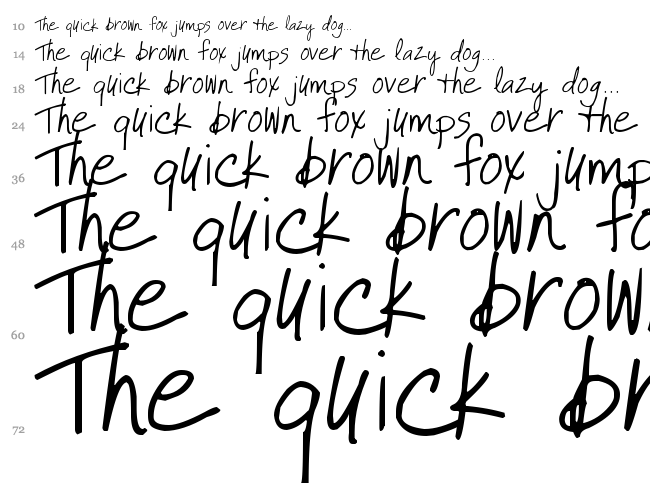 10 The quick brown fox jumps over the lazy dog...
14 The quick brown fox jumps over the lazy dog...
18 The quick brown fox jumps over the lazy dog...
24 The quick brown fox jumps over the
36 The quick brown fox jump
48 The quick brown fo
60 The quick brow
72 The quick br